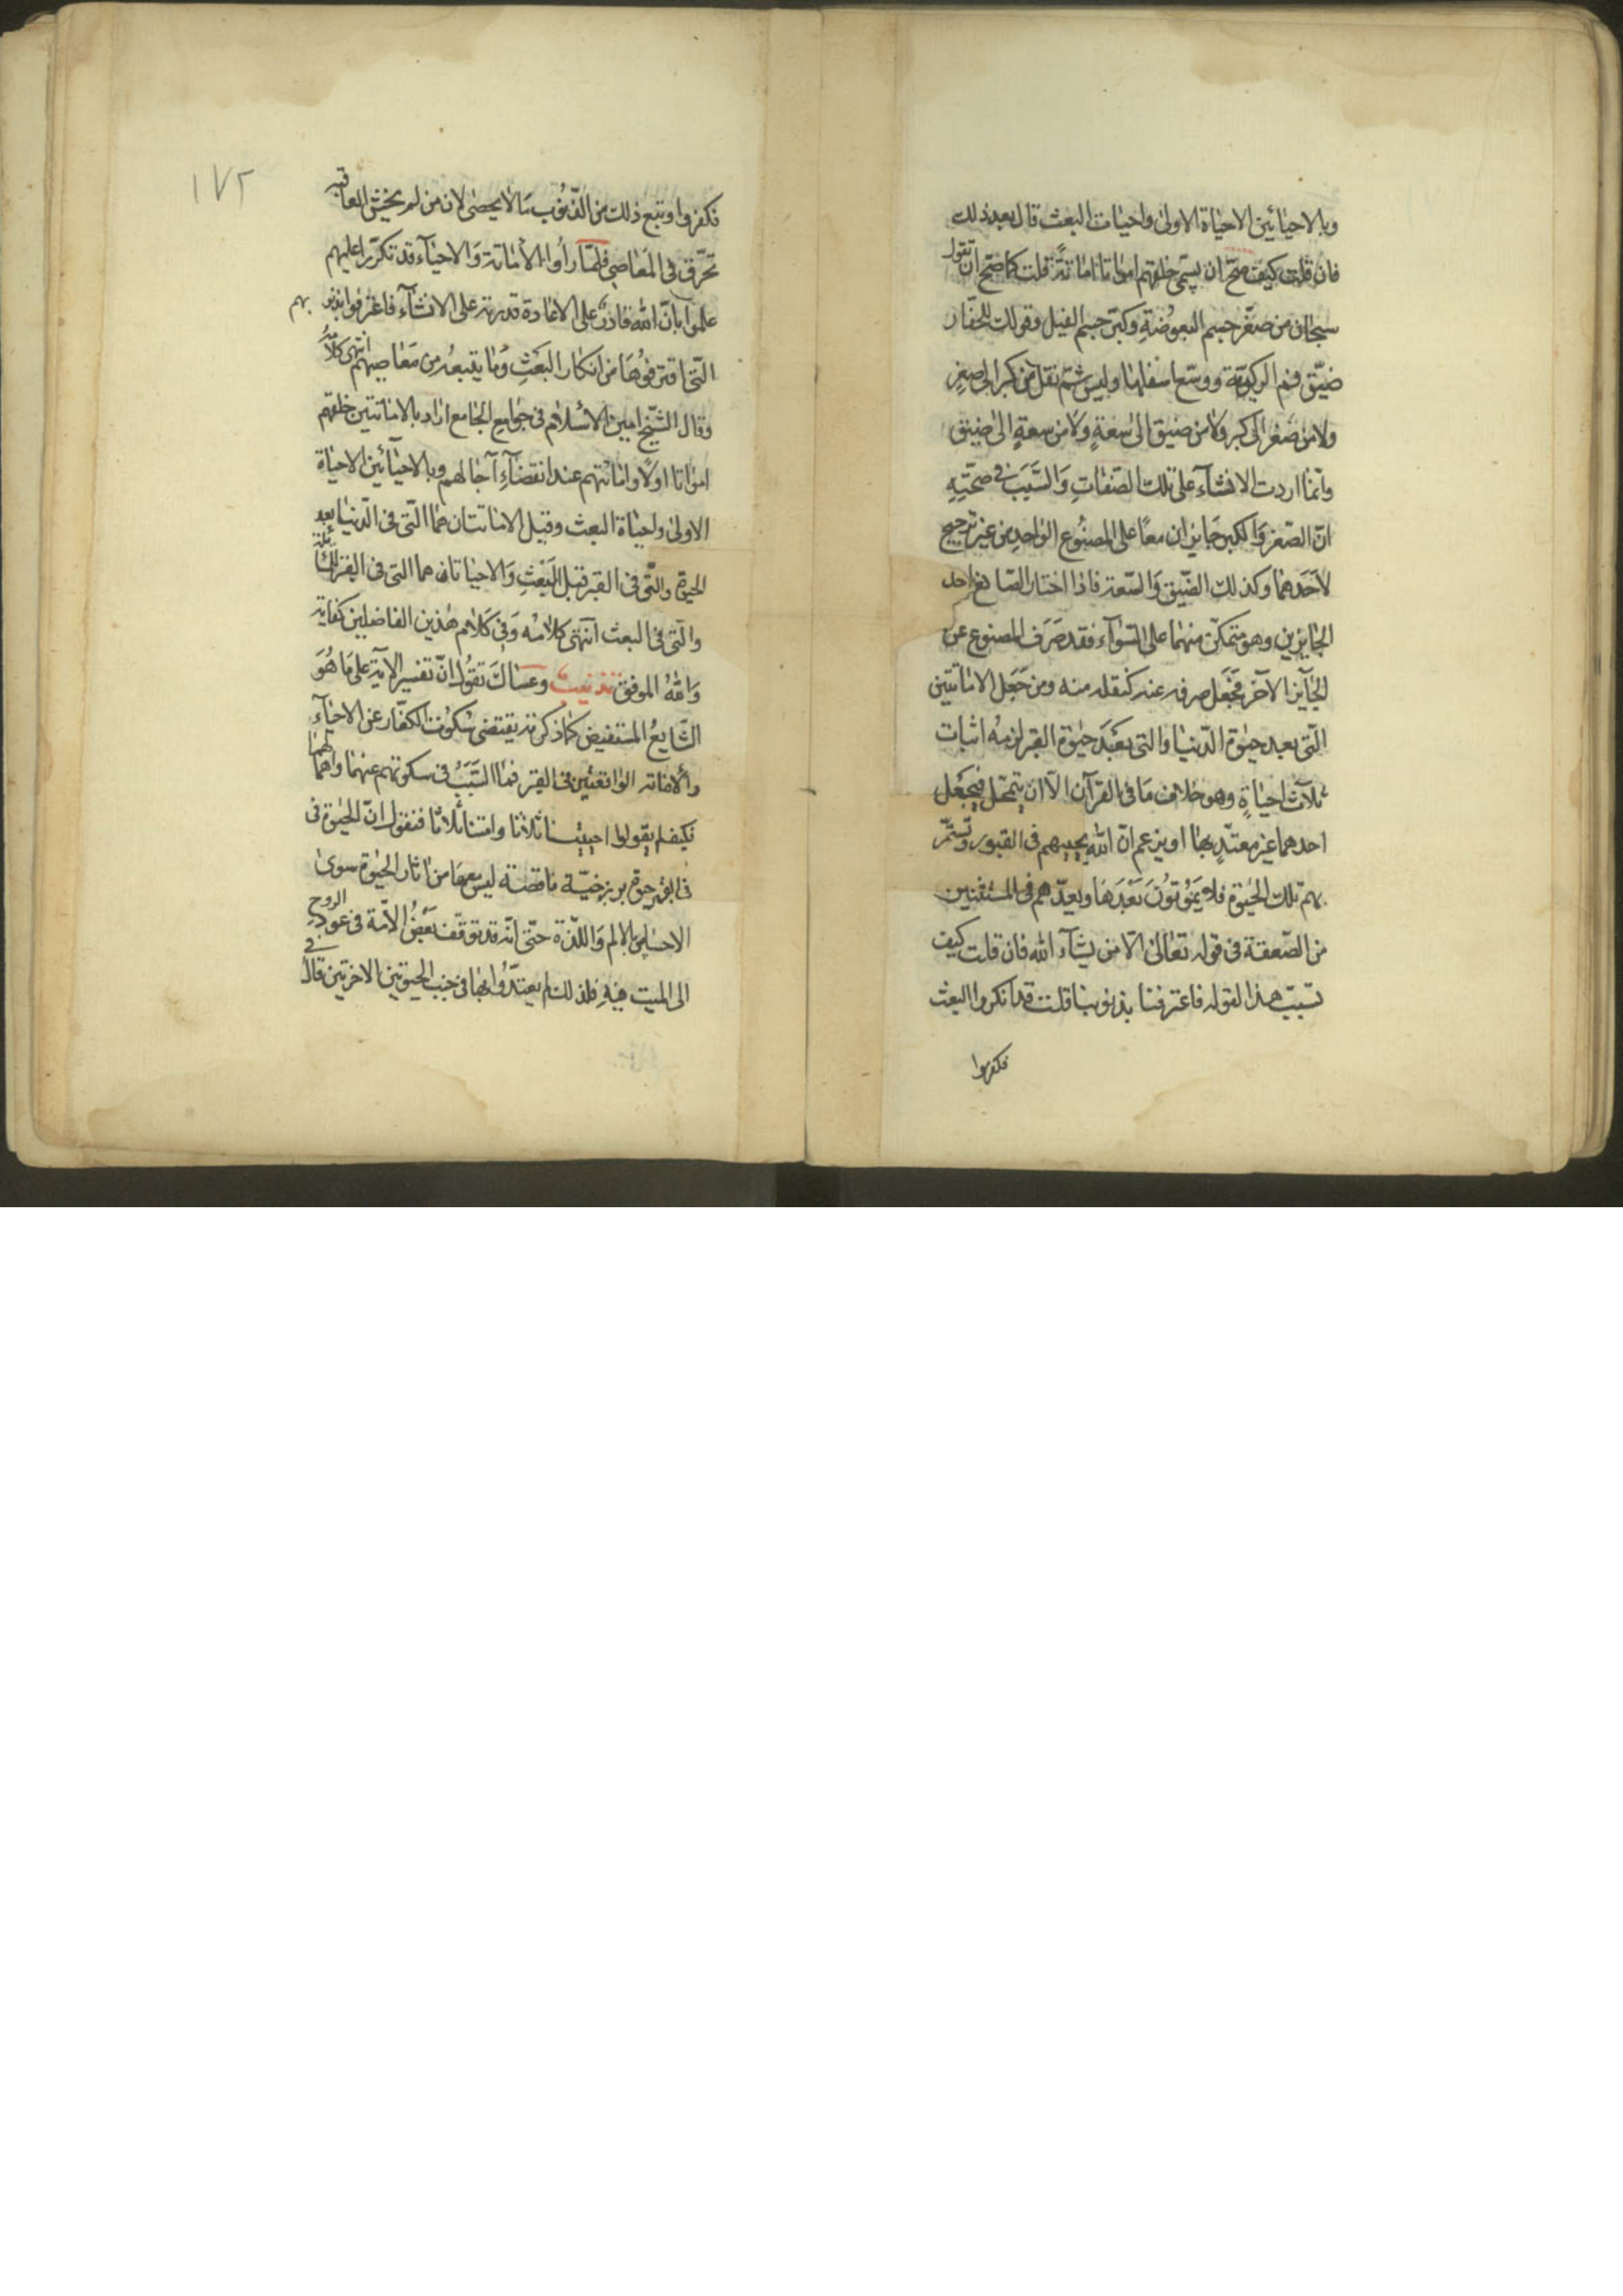 وبالاحيائين الاحياة الاولى واحيات البعث قال بعد ذلك
فان قلت كيف صح ان يسمى خلقهم امواتا اماتةً قلت كما صح ان تقول
سبحان من صغّر جسم البعوضةِ وكبّر جسم الفيل وقولك للحفّار
ضيّق فم الركيّة ووسّع اسفلها وليس ثمّ نقل من كبر الى صغرٍ
ولا من صغر الى كبر ولا من ضيق الى سعةٍ ولا من سعةٍ الى ضيق
وانما اردت الانشآء على تلك الصّفاتِ وَالسَّبَب في صحّتِهِ
انّ الصّغر وَالكبر جَايزان معًا على المصنُوع الواحدِ من غير ترجيح
لاَحَدهما وكذلك الضّيق وَالسّعة فاذا اختار الصّانع احد
الجايزين وهو متمكّن منهما على السّوآء فقد صَرَف المصنوع عن
الجَآيز الآخر فجعل صرفه عنه كنقله منه ومن جَعَل الاماتتين
الّتى بعد حيٰوة الدّنيا والتى بَعَد حيٰوة القبر لزمهُ اثبات
ثلآث احياةٍ وهو خلاف مَا فى القرآن الّا ان يتمحّل فيجعَل
احدهما غير معتدّ بها او يزعم انّ الله يحييهم فى القبور وتستمّر
بهم تلك الحيٰوة فلا يموُتوُنَ بَعْدَهَا ويعدّهم فى المستثنين
من الصّعقة فى قوله تعَالىٰ الّا من يشآء الله فان قلت كيف
تسبّب هذا لقوله فاعترفنا بذنوبنا قلت قد انكروا البعث
فكفروا
١٧٢
فكفروا وتبع ذلك من الذّنوُب مَا لا يحصٰى لان من لم يخش العاقبه
تخرّق فى المَعَاصى فلمّا رأوا الاماتة وَالاحيآء قد تكرّرا عليهم
علموا بانّ الله قادرٌ على الاعَادة قدرته على الانشآء فاعترفوا بذنوبهم
الّتى اقترفوُهَا من انكار البَعَثِ وَمَا يتبعُه من مَعَاصيهم انتهى كلامُه
وقال الشّيخ امين الاسْلام فى جوٰامع الجٰامع ارٰاد بالاماتتين خلقهم
امواتا اولًا وامَاتتهم عند انقضآءِ آجالهم وبالاحيآئين الاحيٰاة
الاولىٰ واحيٰاة البعث وقيل الاماتتان هما الّتى فى الّدنيٰا بعد
الحيوة والتّى فى القبر قبل البَعْثِ وَالاحياتان هما التى فى القبر للمسائلة
والّتى فى البعث انتهٰى كلامُه وَفى كَلاٰم هٰذين الفاضلين كفاية
وَاللهُ الموفق تذنيب وعسَاكَ تقُولُ انّ تفسير الآية على مَا هُوَ
الشّايعُ المستفيض كمَا ذكرته يقتضى سُكوُت الكفّار عن الاحيآء
والاماته الوٰاقعتين فى القبر فمَا السَّبَبُ فى سكوتهم عنهمَا واهمالهما
فكيف لم يقولوا احييتنا ثلاثا وامتنا ثلاثا فنقول انّ الحيٰوة فى
فى القبر حيوة برزخيّة ناقصة ليس معهَا من اثار الحيٰوة سوىٰ
الاحسَاس بالالم وَاللّذة حتّى انّه قد توقّف بَعْضُ الاُمّة فى عود الروح
الى الميت فيه فلذلك لم يعتدّوُا بهَا فى جنب الحيٰوتين الاخرتين قال فى